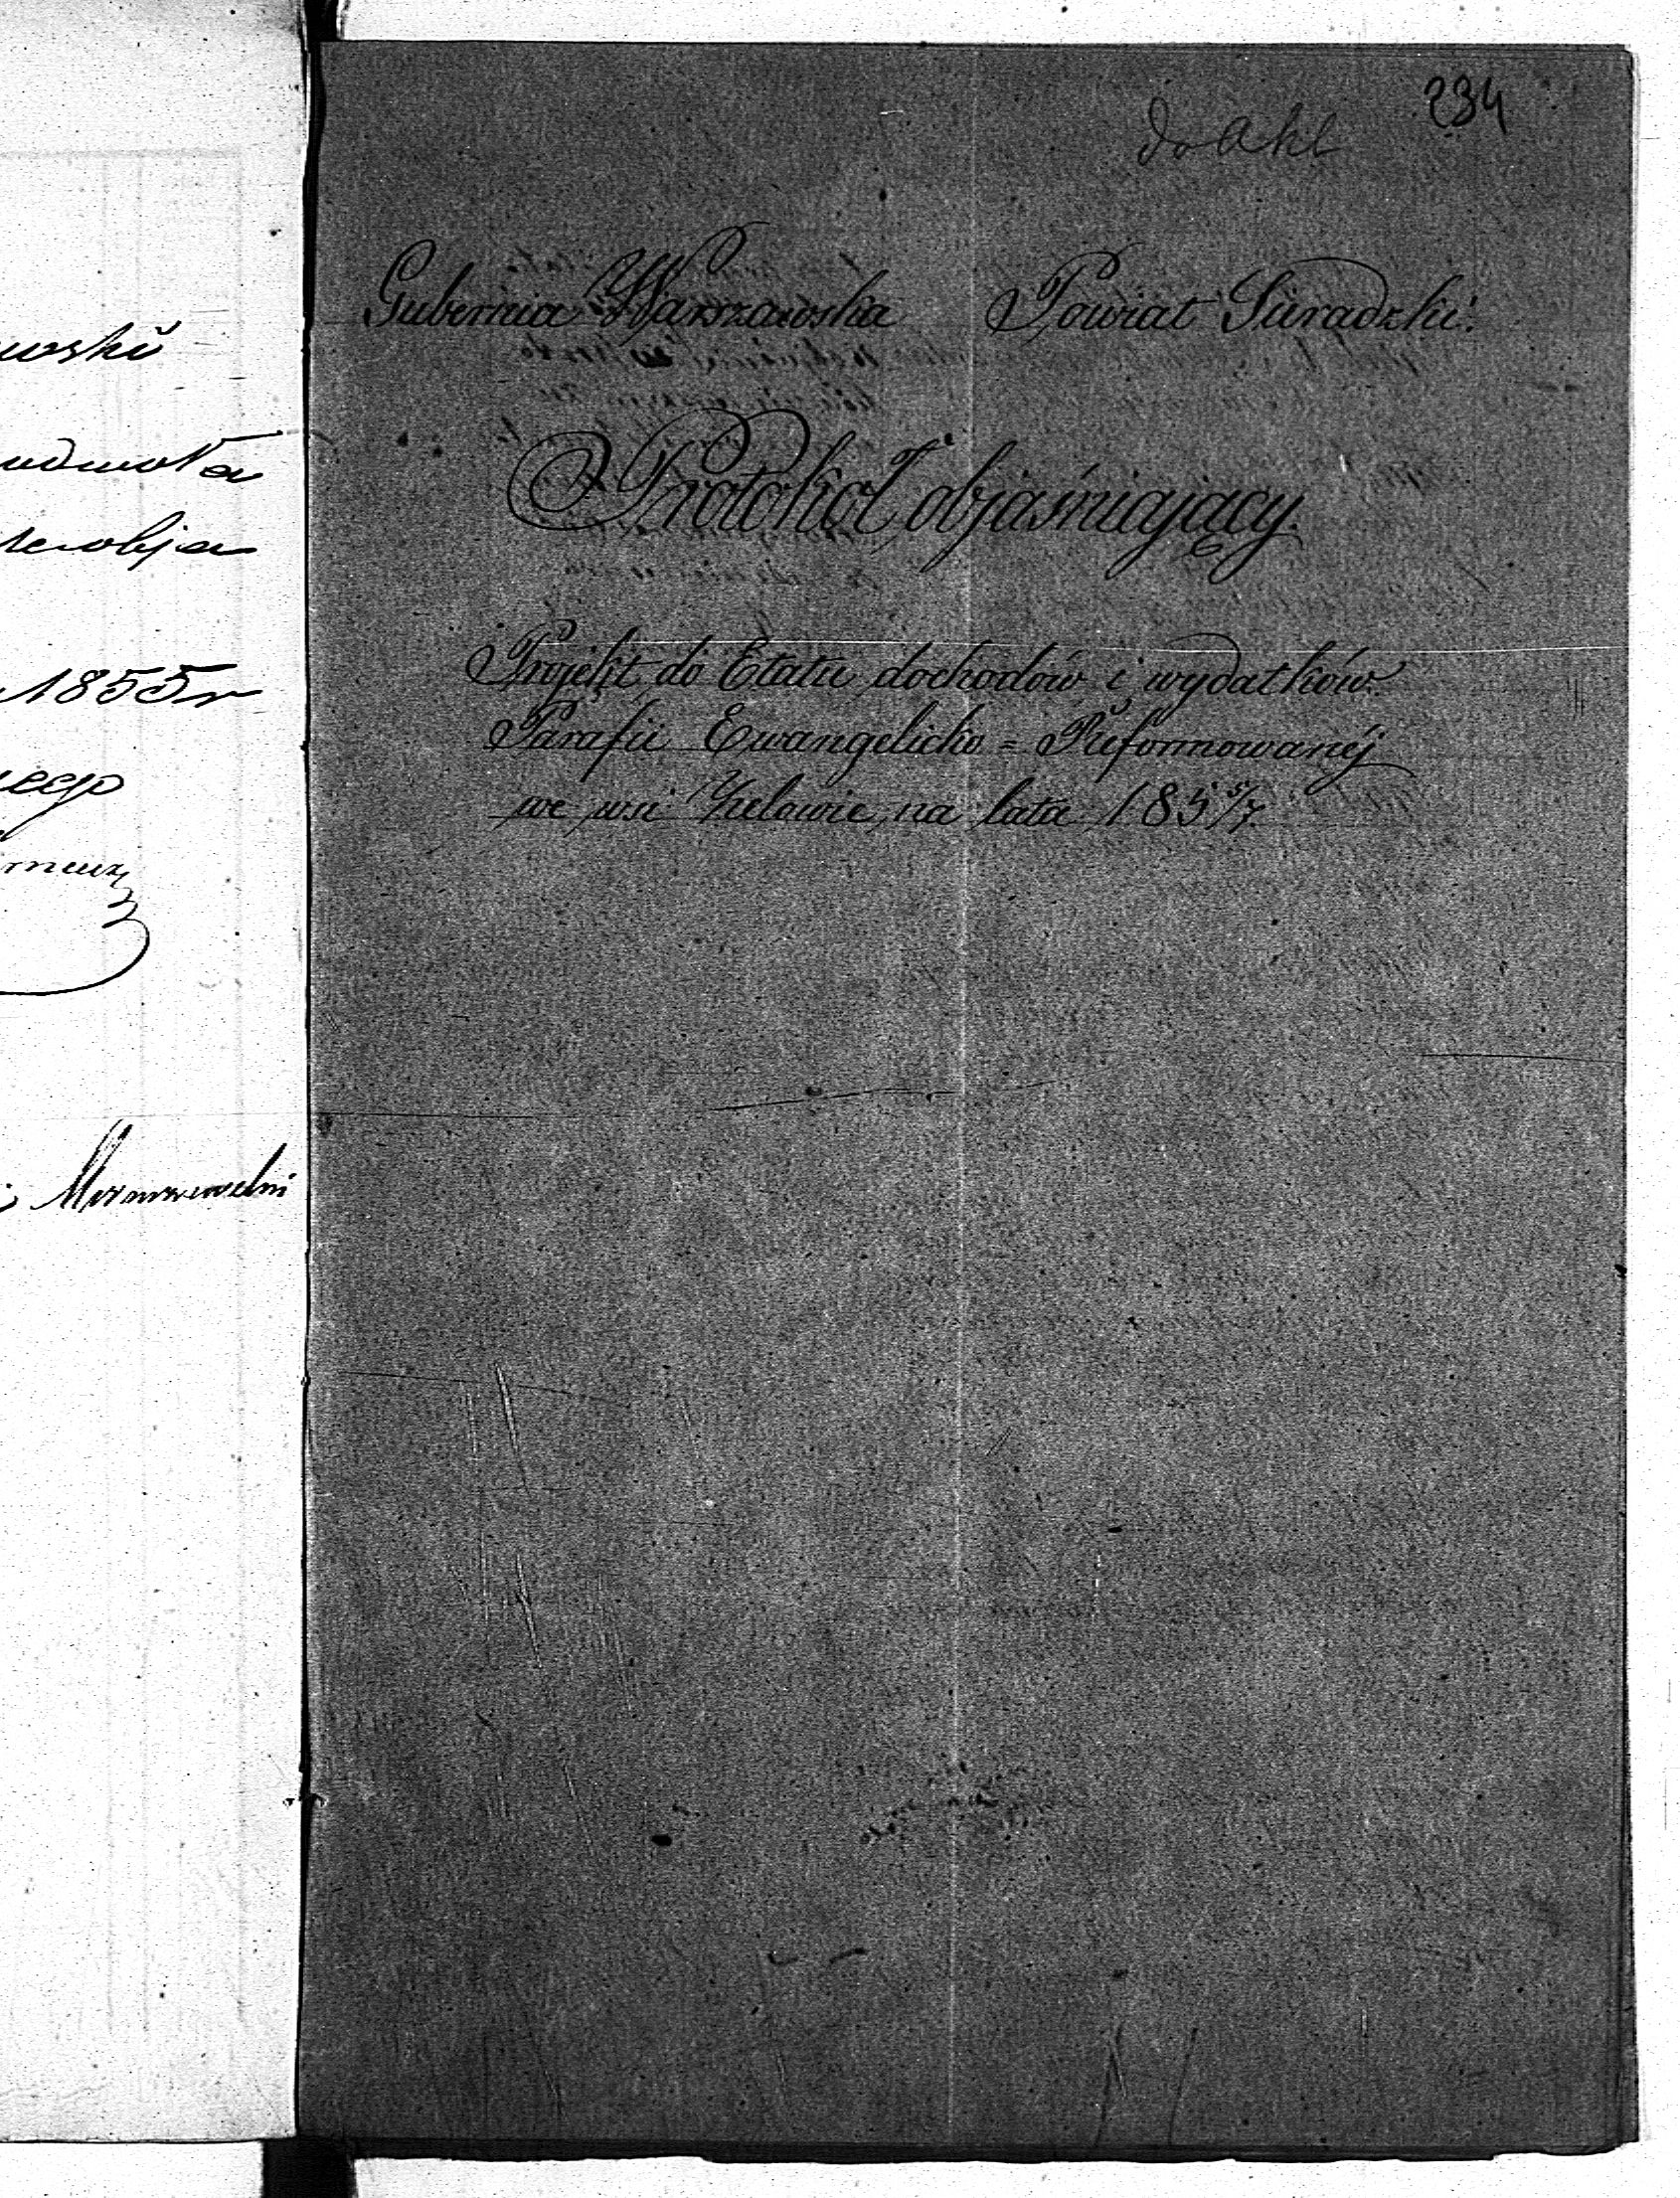 wski
1855 r
234
do Akt
Gubernia Warszawska Powiat Sieradzki.
Protokół objaśniający
Projekt do Etatu dochodów i wydatków
Parafii Ewangelicko = Reformowanéj
we wsi Zelowie, na lata 185 5/7.